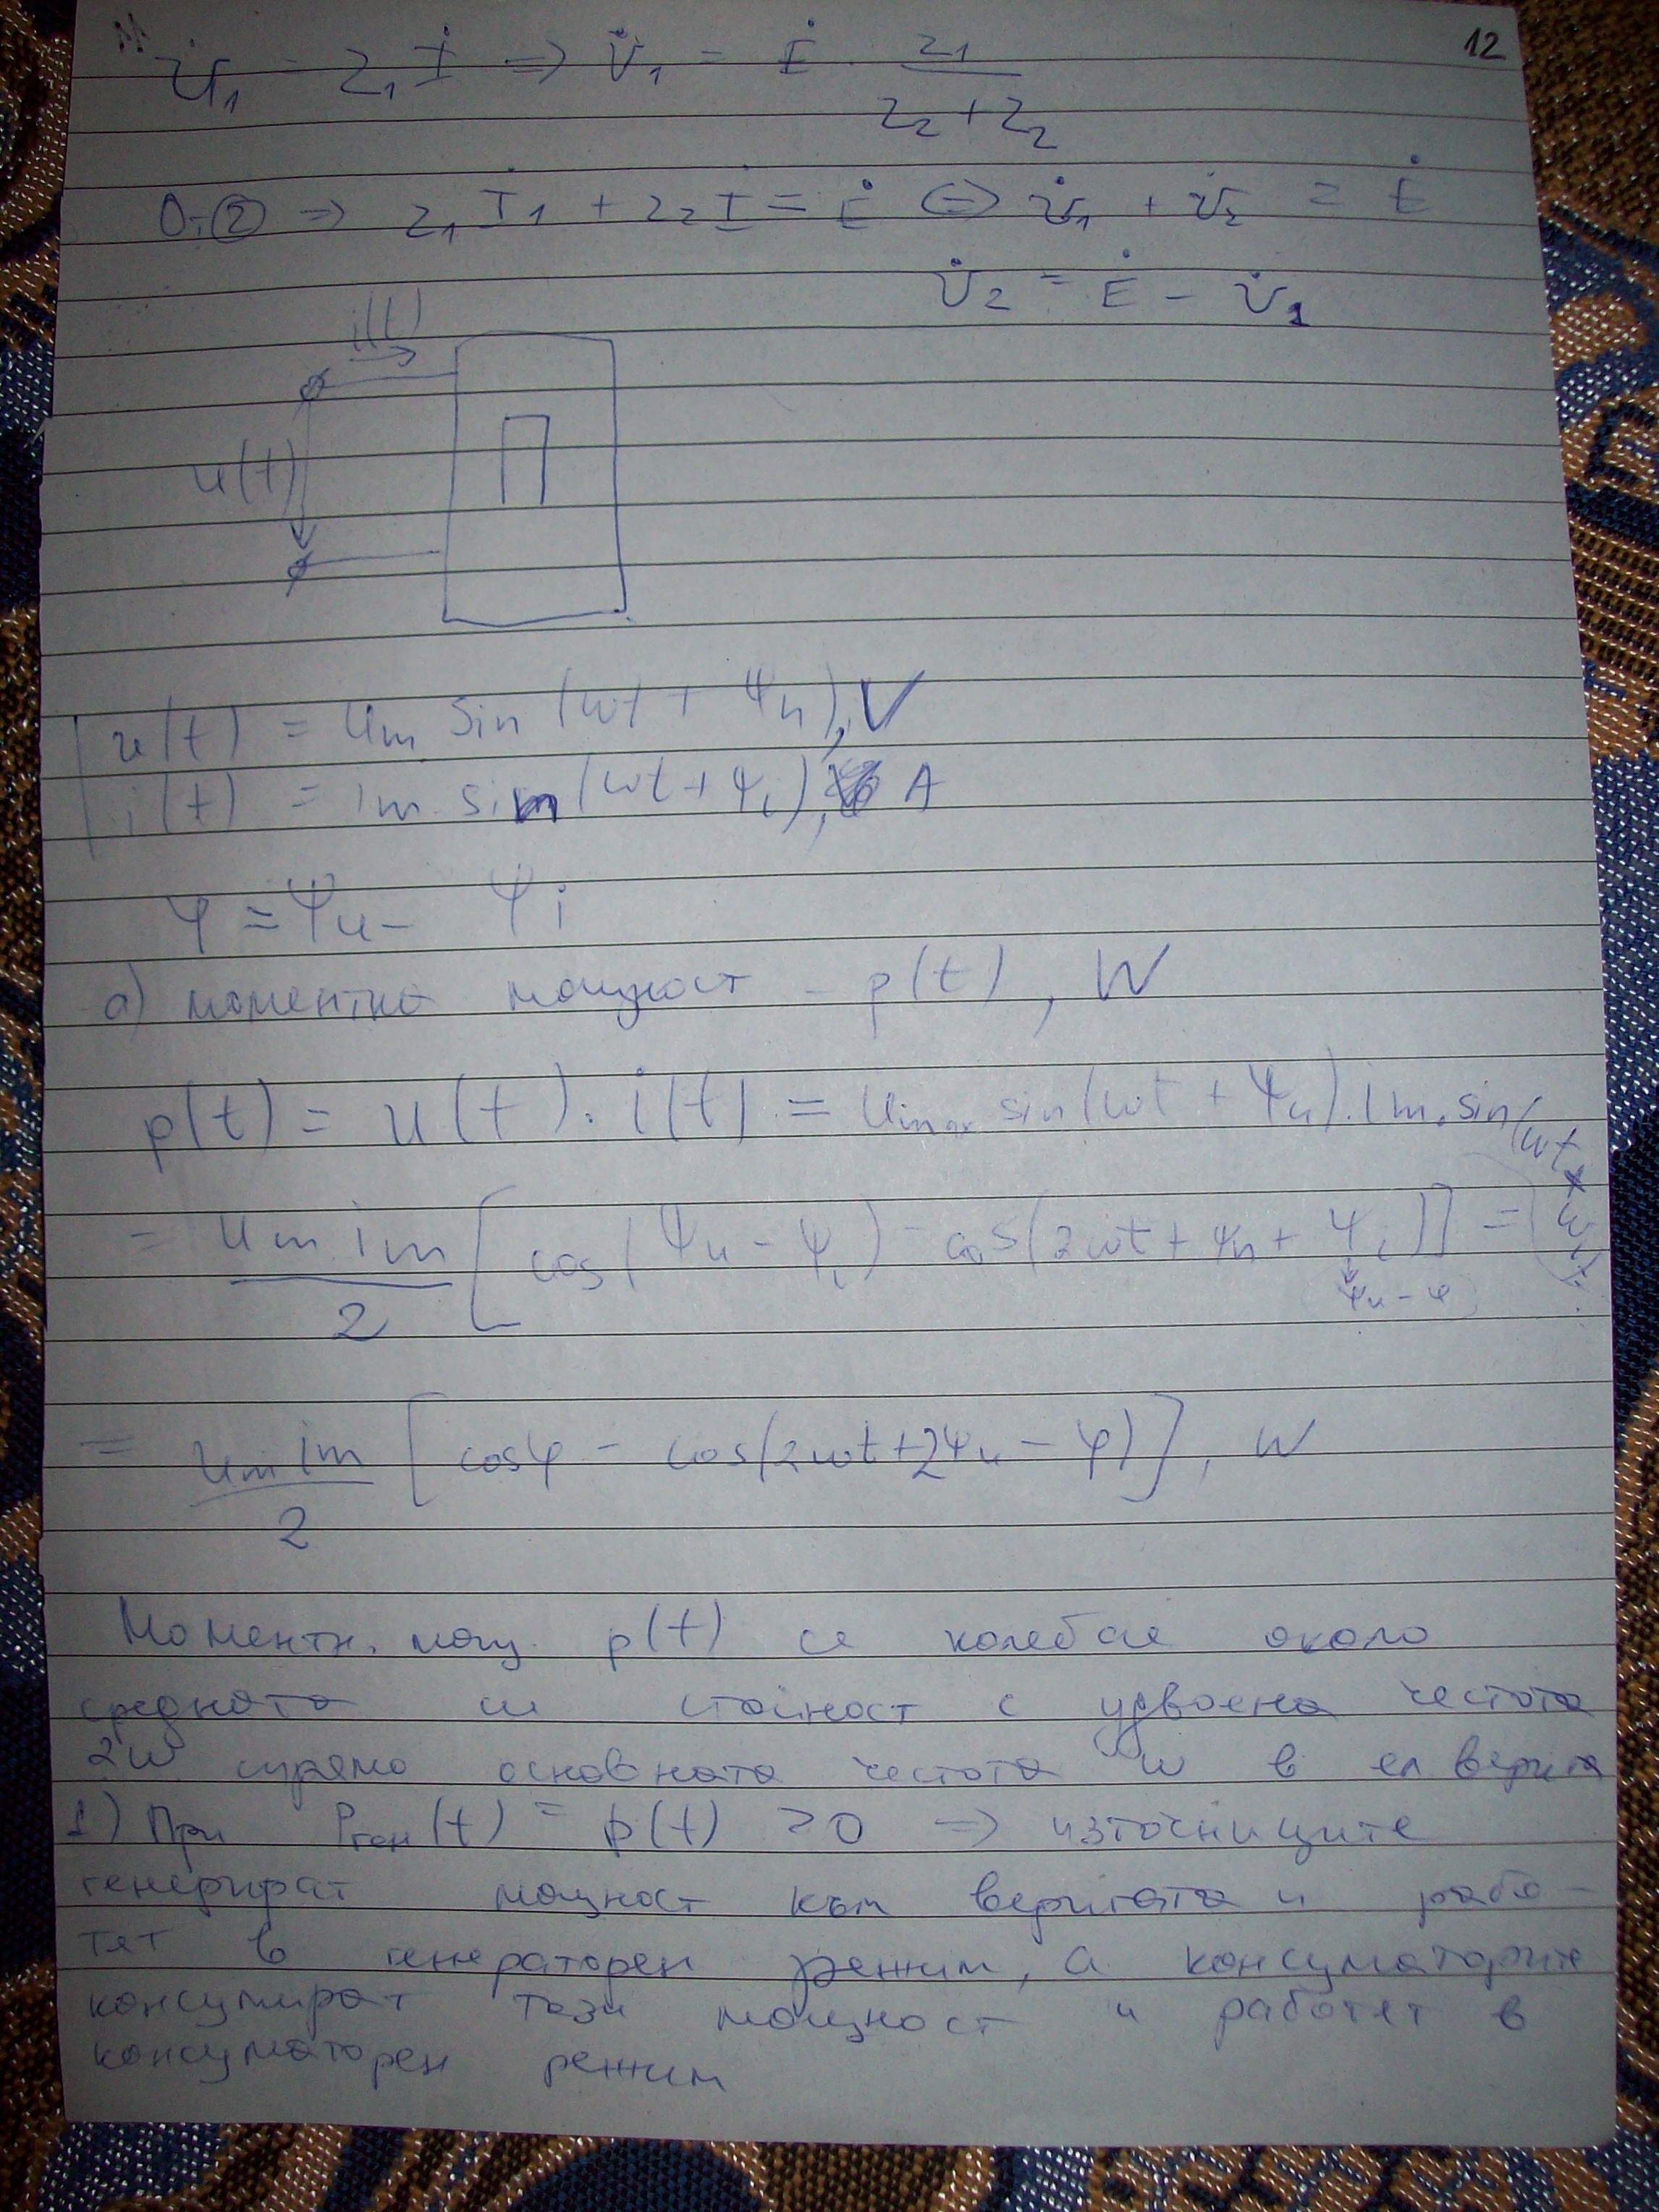 12
U̇₁ = Z₁ İ => U̇₁ = Ė . Z₁ / (Z₂ + Z₂)
От ② => Z₁ İ₁ + Z₂ İ = Ė <=> U̇₁ + U̇₂ = Ė
U̇₂ = Ė - U̇₁
i(t)
u(t)
П
u(t) = Um sin (ωt + Ψu), V
i(t) = Im . sin (ωt + Ψi), A
φ = Ψu - Ψi
а) моментна мощност - p(t), W
p(t) = u(t) . i(t) = Umax sin(ωt + Ψu) . Im . sin(ωt + Ψi) =
= Um Im / 2 [cos(Ψu - Ψi) - cos(2ωt + Ψu + Ψi)] =
Ψu - φ
= Um Im / 2 [cosφ - cos(2ωt + 2Ψu - φ)], W
Моментн. мощ. p(t) се колебае около
средната си стойност с удвоена честота
2ω спрямо основната честота ω в ел верига
1) При Pген(t) = p(t) > 0 => източниците
генерират мощност към веригата и рабо-
тят в генераторен режим, а консуматорите
консумират тази мощност и работят в
консуматорен режим